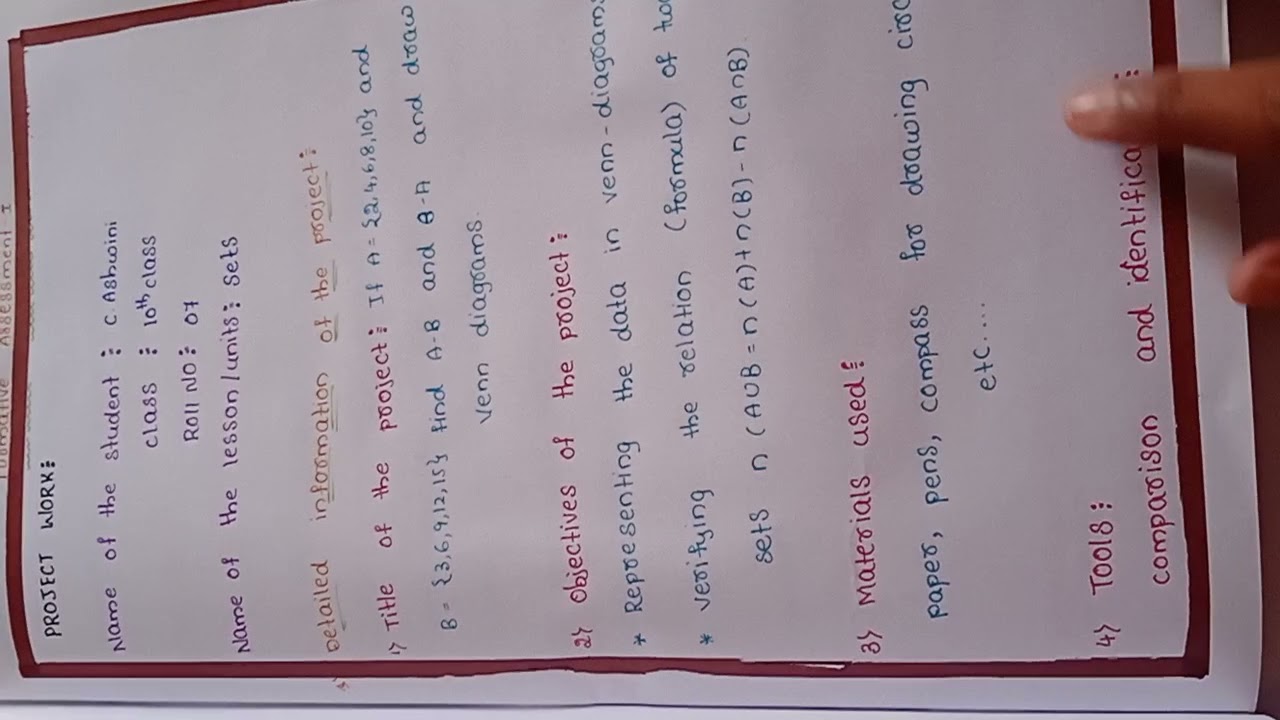 ASSESSMENT I
PROJECT WORK:
Name of the student : C. Ashwini
class : 10th class
Roll NO : 07
Name of the lesson/units : Sets
Detailed information of the project:
1) Title of the project : If A = {2,4,6,8,10} and
B = {3,6,9,12,15} find A-B and B-A and draw
venn diagrams.
2) Objectives of the project:
* Representing the data in venn-diagrams
* verifying the relation (formula) of
sets n (AUB = n(A)+n(B)-n(A∩B).
3) Materials used:
paper, pens, compass for drawing
etc....
4) Tools:
comparison and